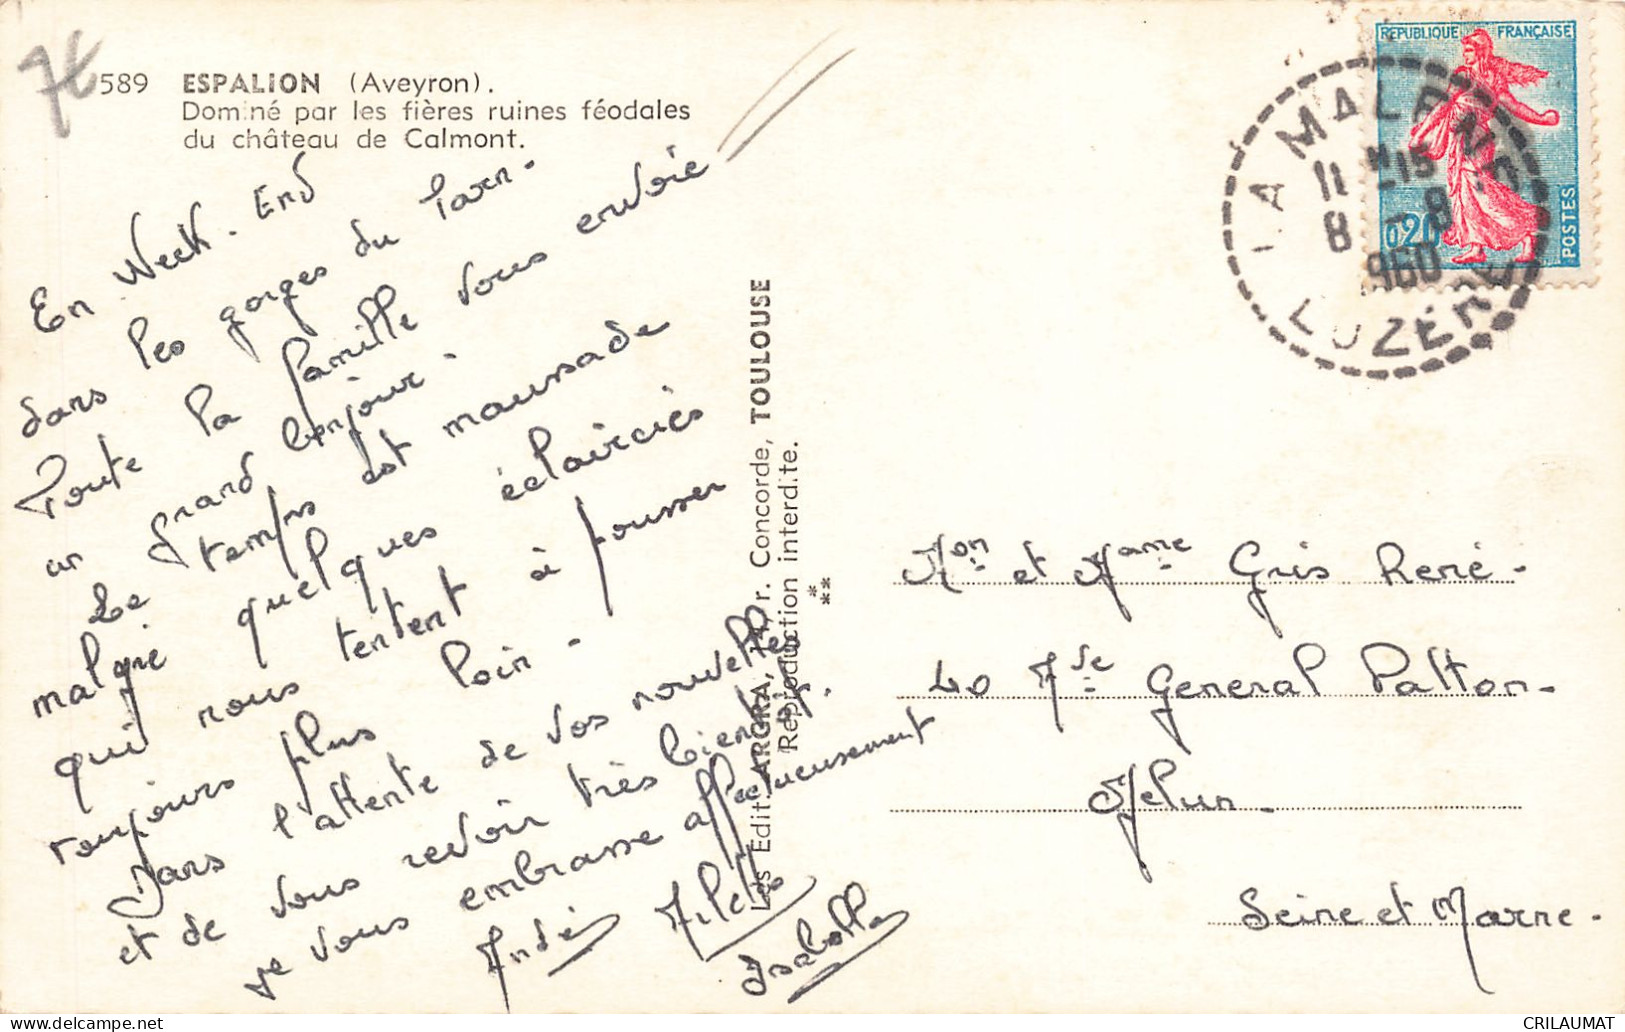 7€
589 ESPALION (Aveyron).
Dominé par les fières ruines féodales
du château de Calmont.
En Week-End
dans les gorges du Tarn-
Toute la famille vous envoie
un grand bonjour-
Le temps est maussade
malgré quelques éclaircies
qui nous tentent à pousser
toujours plus loin-
Dans l'attente de vos nouvelles
et de vous revoir très bientôt.
je vous embrasse affectueusement
André
Isabelle
Les Edit. ARGRA, r. Concorde, TOULOUSE
Reproduction interdite.
*
**
REPUBLIQUE FRANÇAISE
0,20
POSTES
LA MALENE
11 H15
8 - 8
1960
LOZERE
Mon et Mame Gris René-
40 General Patton-
Melun-
Seine et Marne-
CRILAUMAT